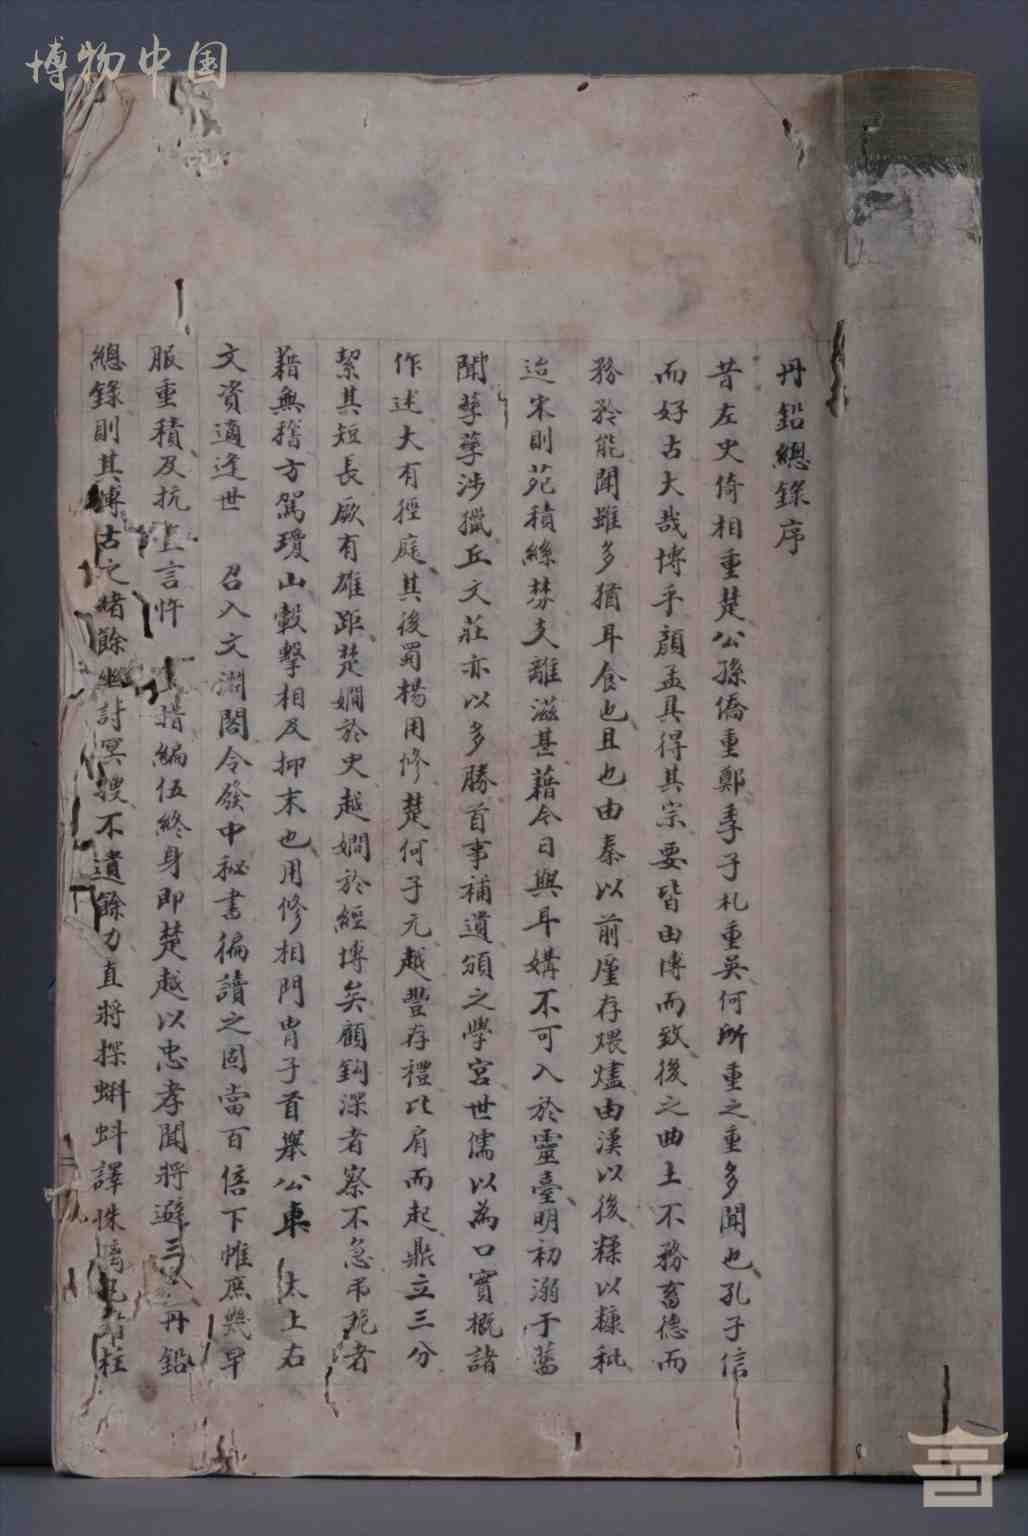 博物中国
丹鉛總錄序
昔左史倚相重楚公孫僑重鄭季子札重吳何所重之重多聞也孔子信
而好古大哉博乎顏孟具得其宗要皆由博而致後之曲士不務畜德而
務矜能聞雖多猶耳食也且也由秦以前廑存煨燼由漢以後糅以糠秕
迨宋則苑積絲棼支離滋甚藉令日與耳媾不可入於靈臺明初溺于舊
聞孳孳涉獵丘文莊亦以多勝首事補遺頒之學宮世儒以為口實概諸
作述大有徑庭其後蜀楊用修楚何子元越豐存禮比肩而起鼎立三分
絜其短長厥有雄距楚嫺於史越嫺於經博矣顧鈎深者察不急弔詭者
藉無稽方駕瓊山轂擊相及抑末也用修相門胄子首舉公車 太上右
文資適逢世 召入文淵閣令發中秘書徧讀之固當百倍下帷庶幾早
服重積及抗上言忤 指編伍終身即楚越以忠孝聞將避三 丹鉛
總錄則其博古之緒餘 討冥搜不遺餘力直將探蝌蚪譯侏 柱